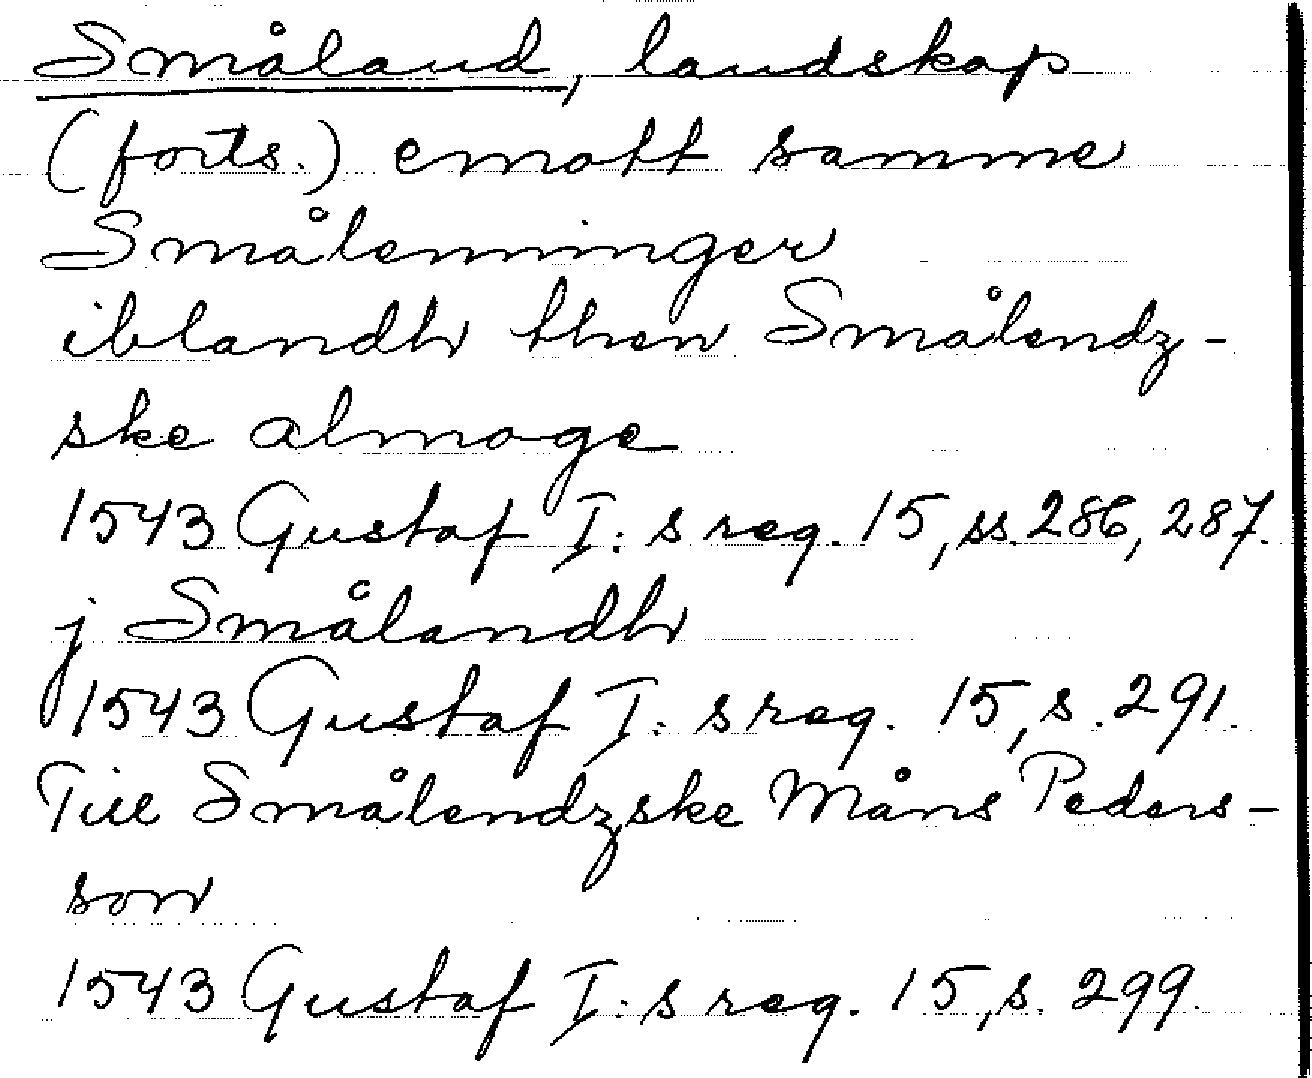 Småland, landskap
(forts.) emott samme
Smålenninger
iblandh then Smålendz-
ske almoge
1543 Gustaf I:s reg. 15, ss. 286, 287.
j Smålandh
1543 Gustaf I:s reg. 15, s. 291.
Till Smålendzske Måns Peders-
son
1543 Gustaf I:s reg. 15, s. 299.